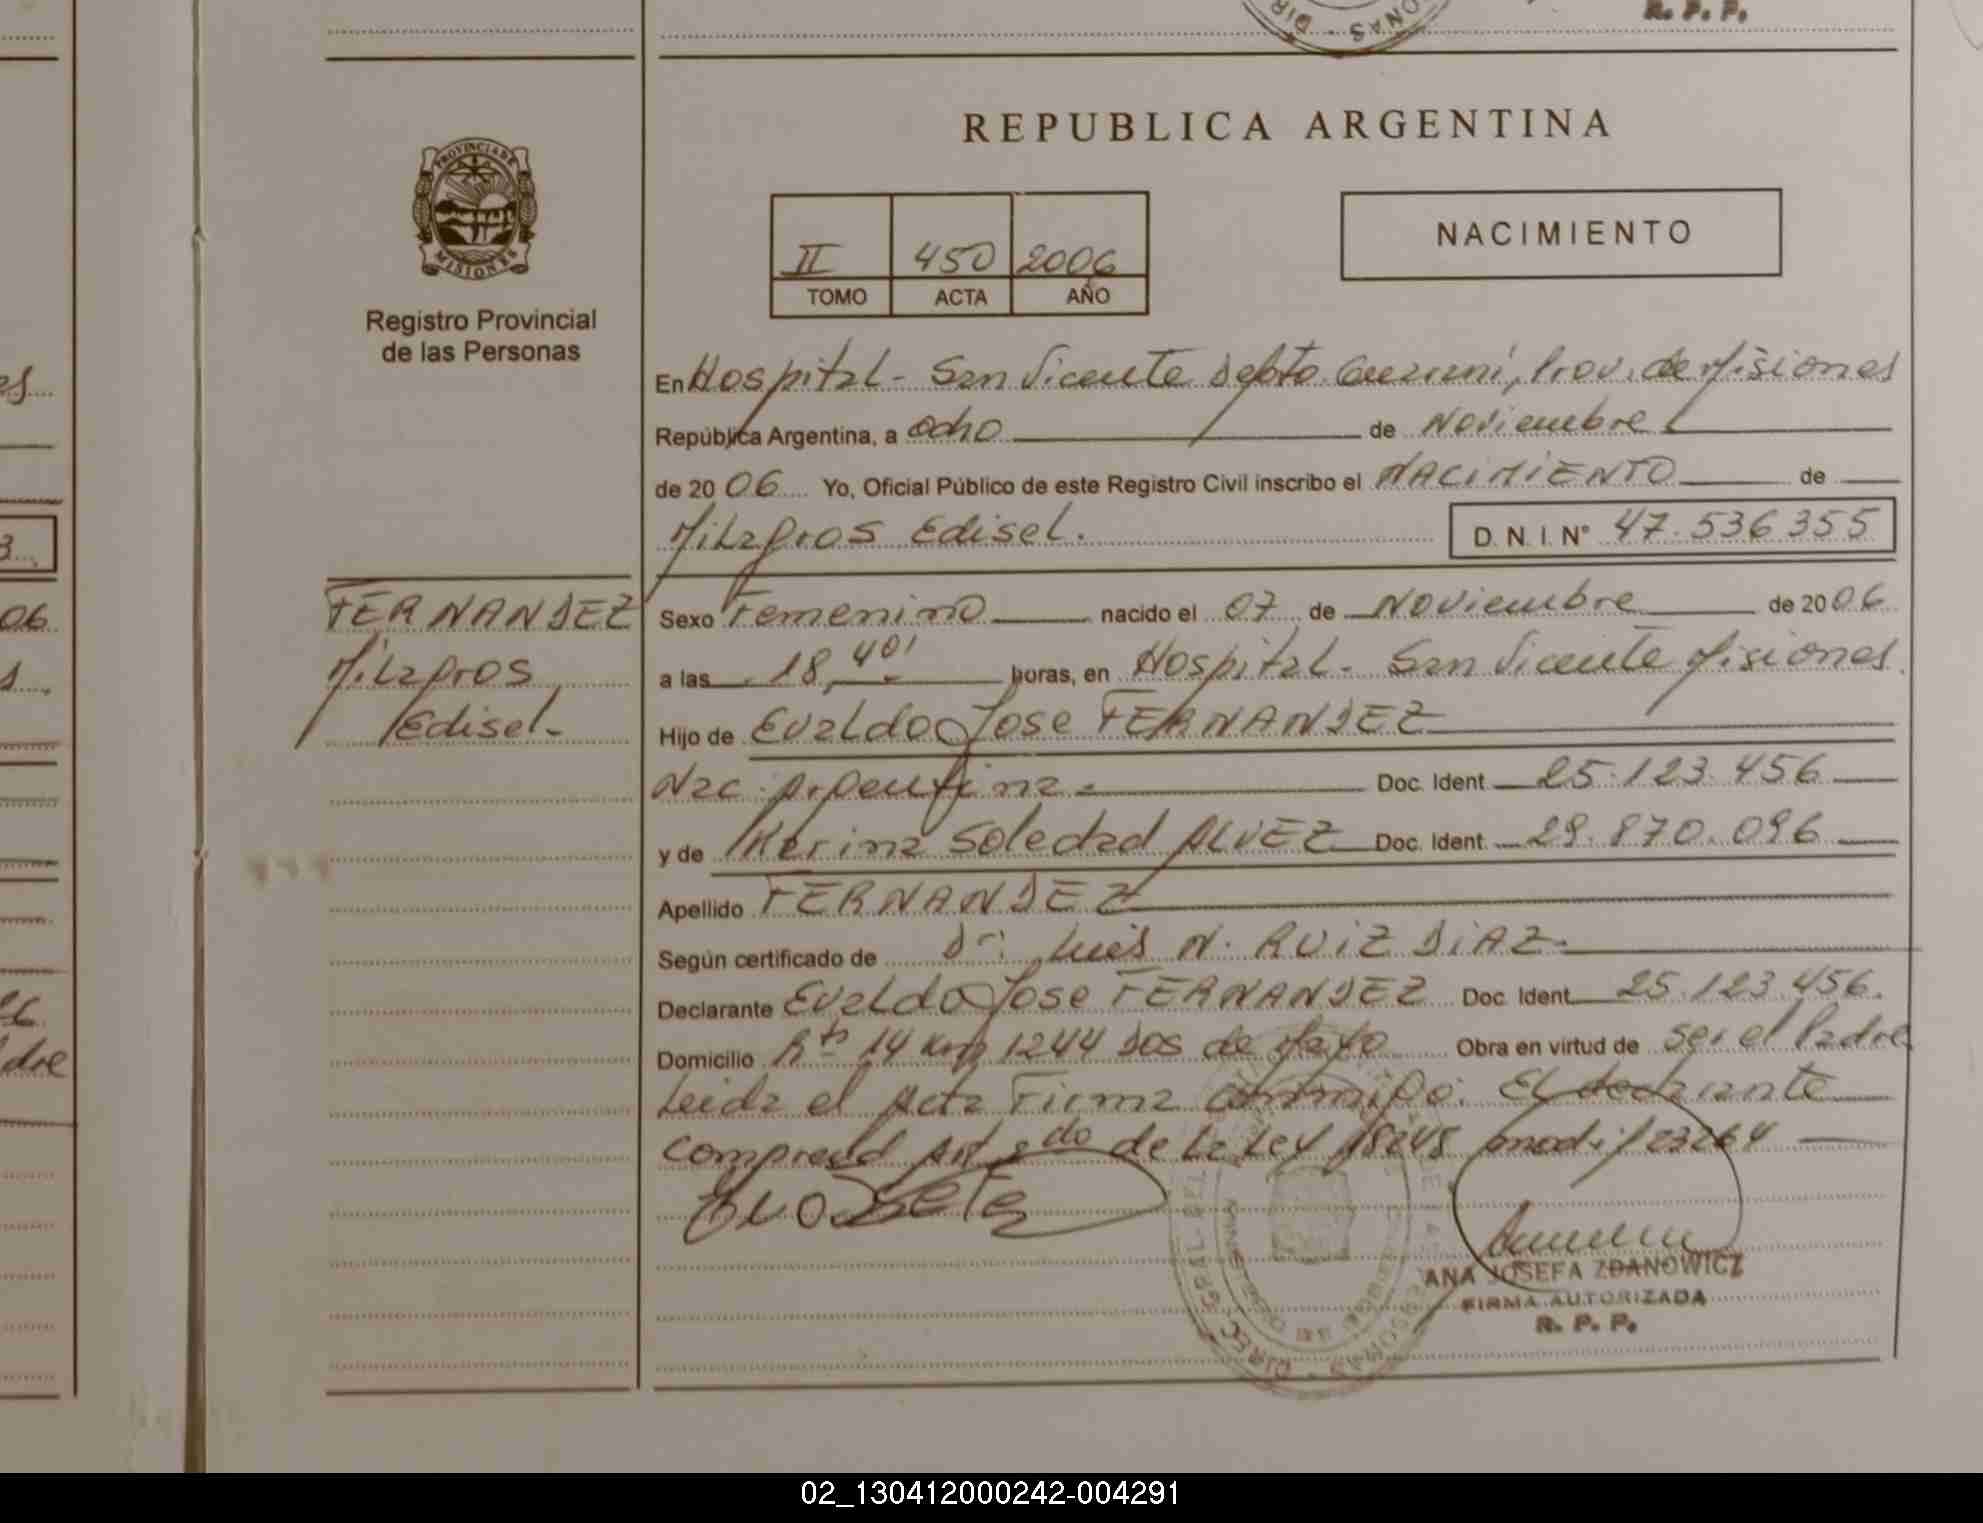 R. P. P.
REPUBLICA ARGENTINA
PROVINCIA DE
MISIONES
Registro Provincial
de las Personas
II 450 2006
TOMO ACTA AÑO
NACIMIENTO
En Hospital - San Vicente Depto. Guaraní, Prov. de Misiones
República Argentina, a ocho de Noviembre
de 2006 Yo, Oficial Público de este Registro Civil inscribo el NACIMIENTO de
Milagros Edisel. D. N. I. N° 47.536355
FERNANDEZ
Milagros
Edisel-
Sexo Femenino nacido el 07 de Noviembre de 2006
a las 18,40' horas, en Hospital - San Vicente Misiones
Hijo de Evaldo Jose FERNANDEZ
Nac. Argentina - Doc. Ident 25.123.456
y de Karina Soledad ALVEZ Doc. Ident. 29.870.096
Apellido FERNANDEZ
Según certificado de Dr: Luis N. RUIZ DIAZ-
Declarante Evaldo Jose FERNANDEZ Doc. Ident 25.123.456.
Domicilio Rta 14 Km 1244 Dos de Mayo Obra en virtud de ser el Padre
Leida el Acta Firma conmigo: El declarante
Comprend Art 2do de la Ley 18248 modif 23264
ANA JOSEFA ZDANOWICZ
FIRMA AUTORIZADA
R. P. P.
02_130412000242-004291